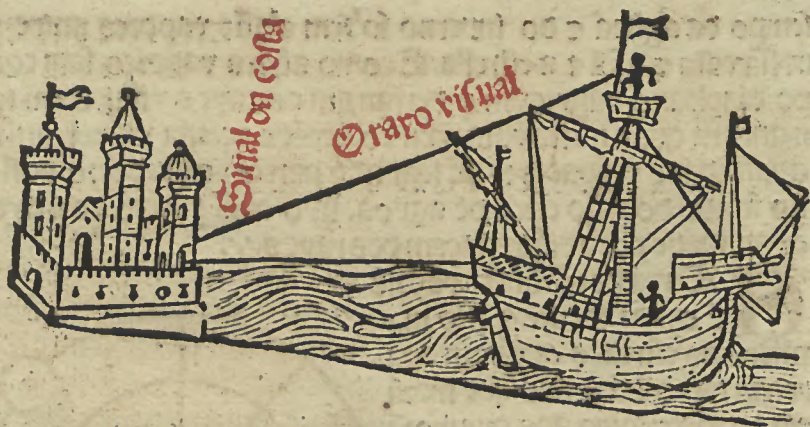 Sinal da coſta
O rayo viſual